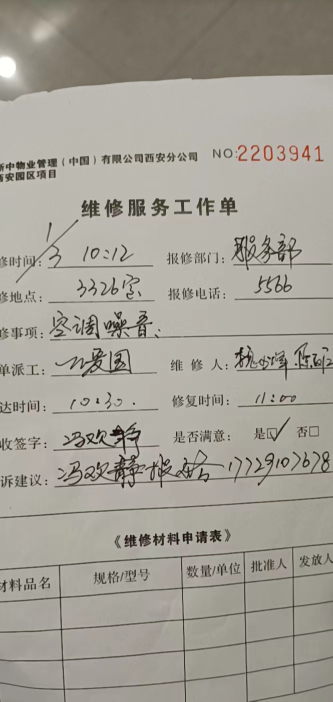 新中物业管理（中国）有限公司西安分公司 NO:2203941
西安园区项目
维修服务工作单
修时间: 1/3 10:12 报修部门: 服务部
修地点: 3326室 报修电话: 5566
修事项: 空调噪音;
单派工: 爱国 维修人:
达时间: 10:30. 修复时间: 11:00
收签字: 冯欢静 是否满意: 是☑ 否□
诉建议: 冯欢静 17729107678
《维修材料申请表》
材料品名 规格/型号 数量/单位 批准人 发放人